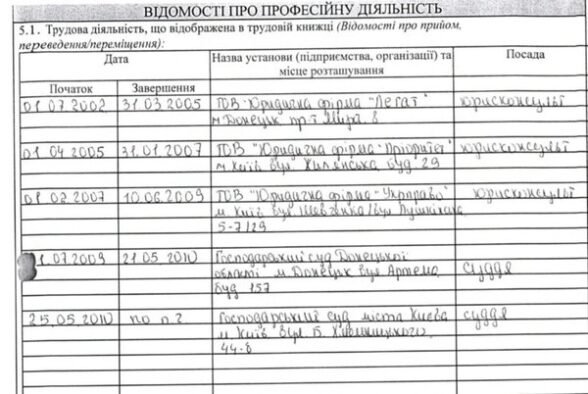 ВІДОМОСТІ ПРО ПРОФЕСІЙНУ ДІЯЛЬНІСТЬ
5.1. Трудова діяльність, що відображена в трудовій книжці (Відомості про прийом,
переведення/переміщення):
Дата
Назва установи (підприємства, організації) та місце розташування
Посада
Початок
Завершення
01.07.2002 31.03.2005 ТОВ "Юридична фірма "Легат" юрисконсульт
м Донецьк пр-т Мира 8
01.04.2005 31.01.2007 ТОВ "Юридична фірма "Пріоритет" юрисконсульт
м Київ вул. Жилянська буд 29
01.02.2007 10.06.2009 ТОВ "Юридична фірма "Укрправо" юрисконсульт
м Київ вул. Шевченка/вул Пушкінська
5-7/29
1.07.2009 21.05.2010 Господарський суд Донецької
області м Донецьк вул Артема суддя
буд 157
25.05.2010 по п.ч Господарський суд міста Києва суддя
м Київ вул Б. Хмельницького,
44-б